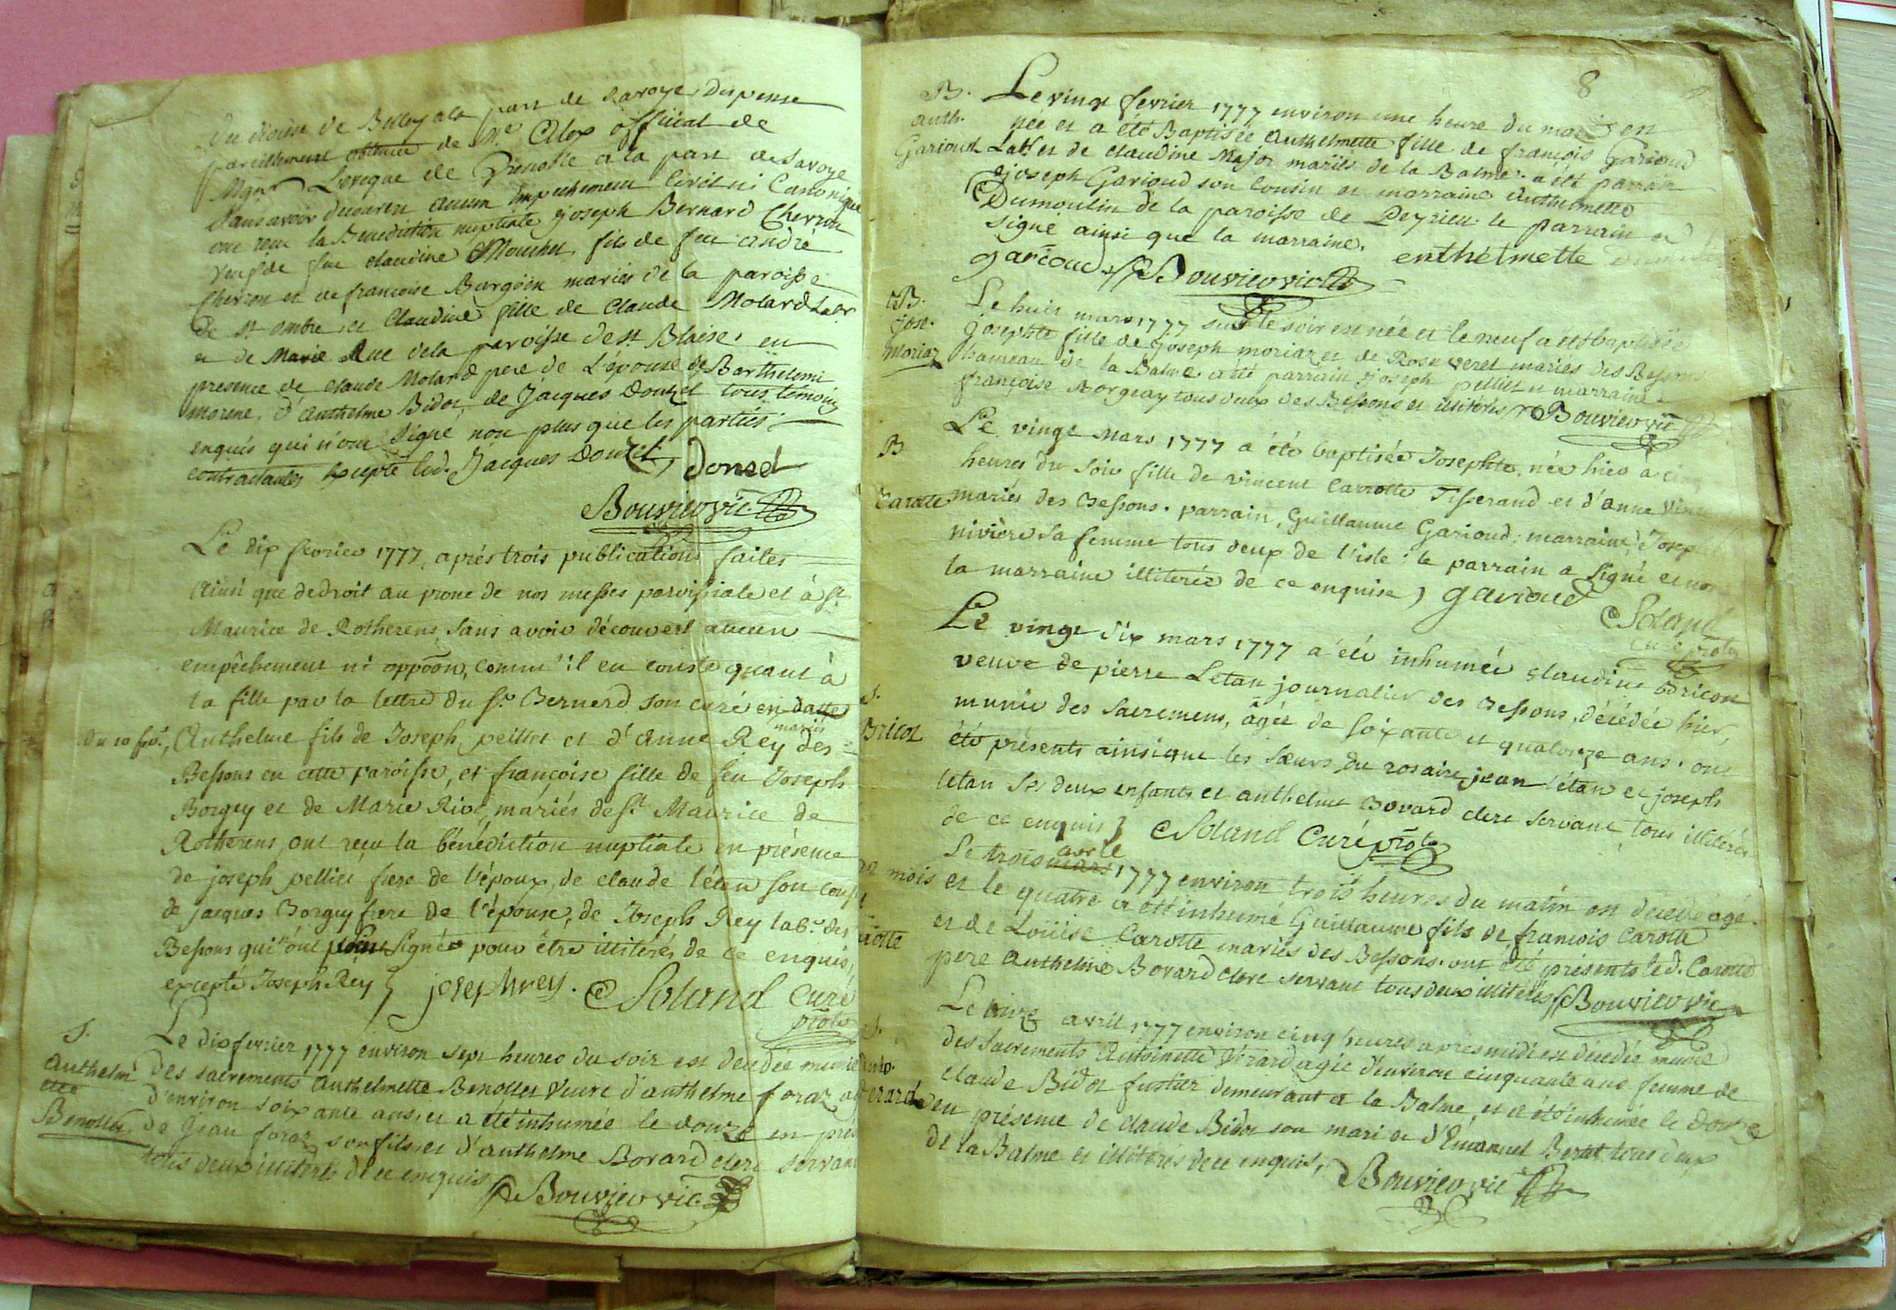 du diocese de Belley a la part de Savoye, dispense
pareillement obtenue de Mr Alex official de
Mgr Leveque de Grenoble a la part de Savoye
sans avoir decouvert aucun Empechement Civil ni Canonique
ont recu la Benediction nuptiale joseph Bernard Chevron
veuf de feu claudine Mouchet fils de feu andré
Chevron et de francoise Burgoin mariés de la paroisse
de st ombre et Claudine fille de Claude Molard Labr
et de Marie Rue de la paroisse de st Blaise, en
presence de claude Molard pere de L'épouse de Barthelemi
morene, d'Anthelme Bidot, de Jacques Donzel tous temoins
enquis qui n'ont signé non plus que les parties
contractantes excepté led. Jacques Donzel, donzel
Bouvier vic
Le dix fevrier 1777, après trois publications faites
ainsi que de droit au prone de nos messes paroissiale et à st
Maurice de Rotherens, sans avoir découvert aucun
empêchement ni oppôon, comme il en conste quant à
la fille par la lettre du sr Bernerd son curé en datte
du 10 fevr, Anthelme fils de Joseph peillet et d'Anne Rey mariés des
Bessons en cette paroisse, et françoise fille de feu Joseph
Borgey et de Marie Rive mariés de St Maurice de
Rotherens, ont reçu la bénédiction nuptiale en présence
de joseph pellier frere de l'époux, de claude létan son
de jacques Borgey frere de l'épouse, de Joseph Rey labr des
Bessons qui n'ont signé pour être illitérés de ce enquis,
excepté Joseph Rey } joseph rey. Soland curé
prote
S.
Anthelm
ette
Benollet
Le dix fevrier 1777 environ sept heures du soir est decedee munie
des sacrements Anthelmette Benollet veuve d'anthelme foraz
d'environ soixante ans, et a été inhumée le douze en
de Jean foraz son fils et d'anthelme Bovard clerc servant
tous deux illitérés de ce enquis
Bouvier vic
8
B.
Anth.
Garioud
Le vingt fevrier 1777 environ une heure du matin est
née et a été Baptisée Anthelmette fille de francois Garioud
Labr et de claudine Major mariés de la Balme. a été parrain
joseph Garioud son cousin et marraine Anthelmette
Dumoulin de la paroisse de Peyrieu. le parrain a
signé ainsi que la marraine. enthelmette
garioud Bouvier vic
B.
Jose.
Moriaz
Le huit mars 1777 sur le soir est née et le neuf a été baptisée
Josephte fille de joseph moriaz et de Rose veret mariés des Bessons
hameau de la Balme. a été parrain joseph pellier et marraine
francoise Borgeay tous deux des Bessons et illitérés Bouvier vic
B
Carotte
Le vingt mars 1777 a été baptisée Josephte, née hier à cinq
heures du soir fille de vincent Carrotte Tisserand et d'anne
mariés des Bessons. parrain, Guillaume Garioud; marraine, Joseph
nivière sa femme tous deux de l'isle: le parrain a signé et non
la marraine illiterée de ce enquise } garioud
Soland
curé prote
Le vingt six mars 1777 a été inhumée claudine Bricot
veuve de pierre Létan journalier des Bessons, décédée hier,
munie des sacremens, âgée de soixante et quatorze ans. ont
été présents ainsique les sœurs du rosaire jean létan et joseph
létan ses deux enfants et anthelme Bovard clerc servant tous illitérés
de ce enquis } Soland curé prote
S.
Bricot
Le trois avrile 1777 environ trois heures du matin est decedé agé
22 mois et le quatre a été inhumé Guillaume fils de francois Carotte
et de Louise Carotte mariés des Bessons. ont été présents led. Carotte
pere Anthelme Bovard clerc servant tous deux illiterés Bouvier vic
Le onze avril 1777 environ cinq heures après midi est décédée munie
des sacrements Antoinette Verard agée d'environ cinquante ans femme de
claude Bidot fustier demeurant a la Balme, et a été inhumée le douze
en présence de claude Bidot son mari et d'Emanuel Berlit tous deux
de la Balme et illitérés de ce enquis,
Bouvier vic